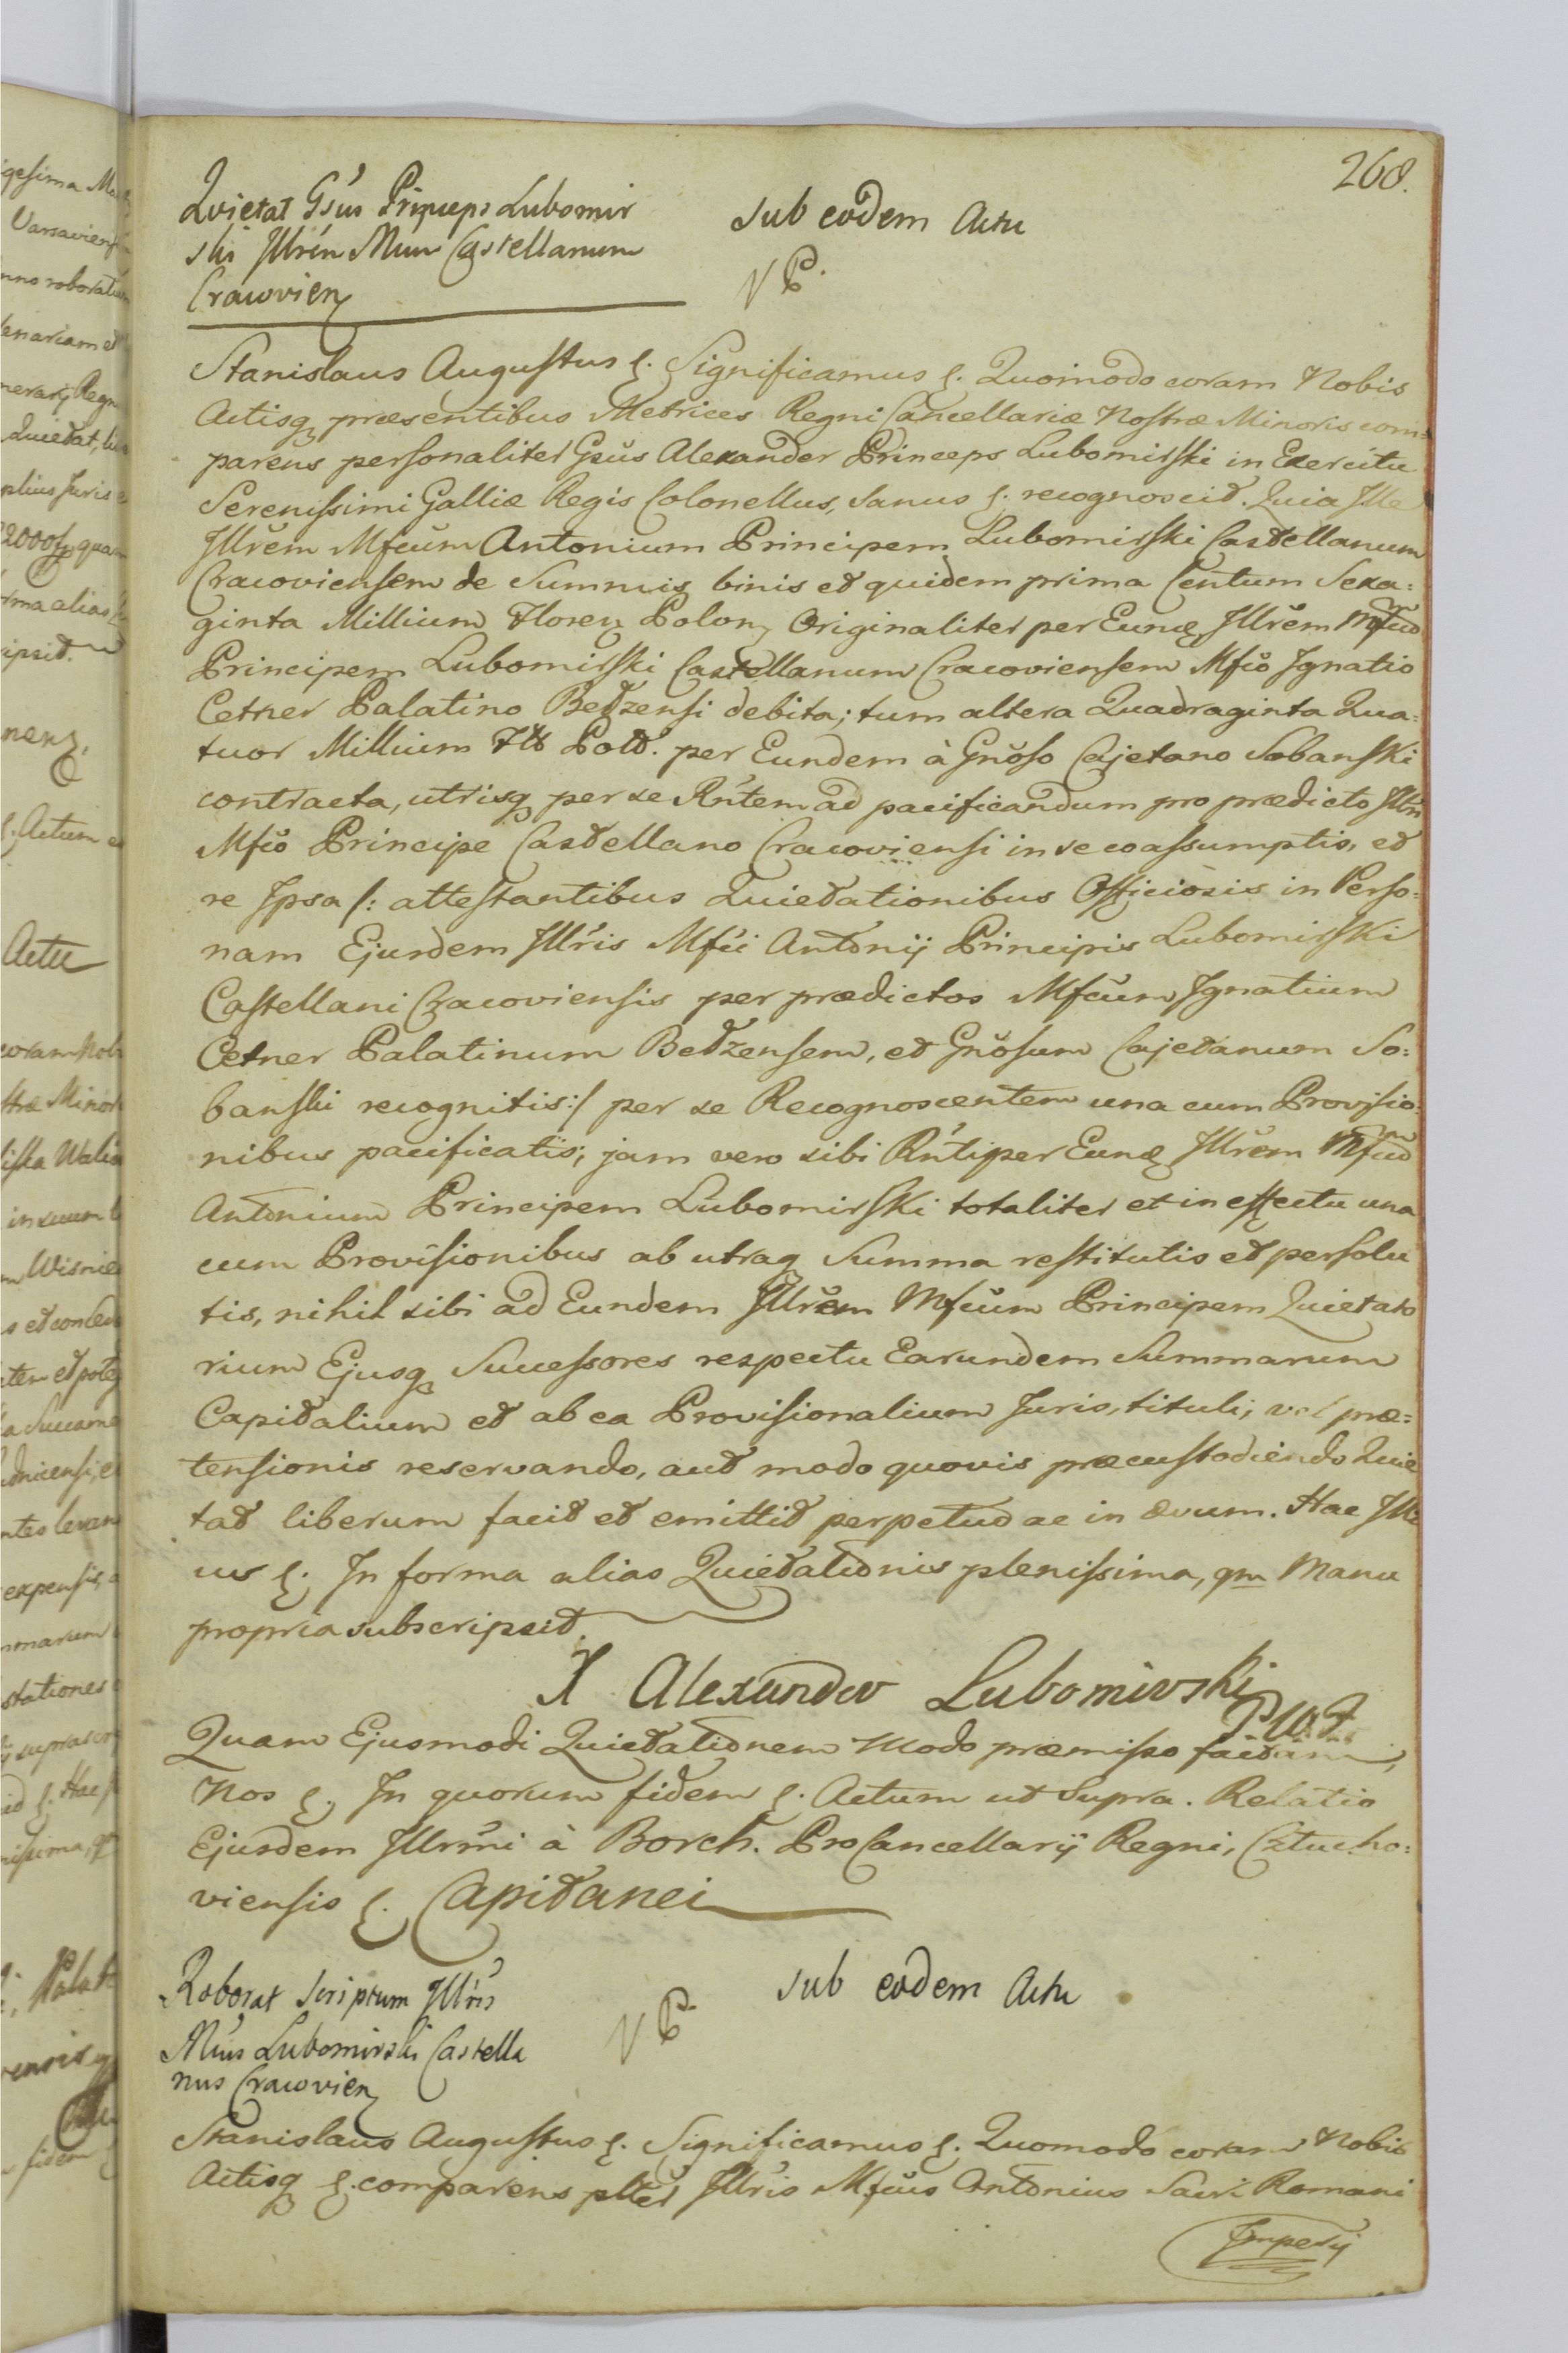 268.
Quietat Gsus Princeps Lubomir
ski Illrem Mum Castellanum
Cracovien
Sub eodem Actu
NP.
Stanislaus Augustus &. Significamus &. Quomodo coram Nobis
Actisq præsentibus Metrices Regni Cancellariæ Nostræ Minoris com=
parens personaliter Gsus Alexander Princeps Lubomirski in Exercitu
Serenissimi Galliæ Regis Colonellus, Sanus &. recognoscit. Quia Ille
Illrem Mfcum Antonium Principem Lubomirski Castellanum
Cracoviensem de Summis binis et quidem prima Centum Sexa=
ginta Millium Floren Polon Originaliter per Eund Illrem Mfcum
Principem Lubomirski Castellanum Cracoviensem Mfco Ignatio
Cetner Palatino Betzensi debita; tum altera Quadraginta Qua=
tuor Millium Fl Pol. per Eundem à Gnoso Cajetano Sobanski
contracta, utrisq per se Rntem ad pacificandum pro prædicto Illri
Mfco Principe Castellano Cracoviensi in se coassumptis, et
re Ipsa /: attestantibus Quietationibus Officiosis in Perso=
nam Ejusdem Illris Mfci Antonij Principis Lubomirski
Castellani Cracoviensis per prædictos Mfcum Ignatium
Cetner Palatinum Betzensem, et Gnosum Cajetanum So=
banski recognitis :/ per se Recognoscentem una cum Provisio=
nibus pacificatis; jam vero sibi Rnti per Eund Illrem Mfcum
Antonium Principem Lubomirski totaliter et in effectu una
cum Provisionibus ab utraq Summa restitutis et persolu
tis, nihil sibi ad Eundem Illrem Mfcum Principem Quietato
rium Ejusq Successores respectu Earundem Summarum
Capitalium et ab ea Provisionalium Juris, tituli, vel præ=
tensionis reservando, aut modo quovis præcustodiendo Quie
tat liberum facit et emittit perpetuo ac in ævum. Hac Ille
us &. In forma alias Quietationis plenissima, qm Manu
propria subscripsit.
X Alexander Lubomirski
Quam Ejusmodi Quietationem Modo præmisso factam,
Nos &. In quorum fidem &. Actum ut Supra. Relatio
Ejusdem Illrmi à Borch. ProCancellarij Regni, Cztucho=
viensis &. Capitanei
Roborat Scriptum Illris
Mcus Lubomirski Castella
nus Cracovien
NP.
Sub eodem Actu
Stanislaus Augustus &. Significamus &. Quomodo coram Nobis
Actisq &. comparens plter Illris Mfcus Antonius Sacri Romani
Imperij